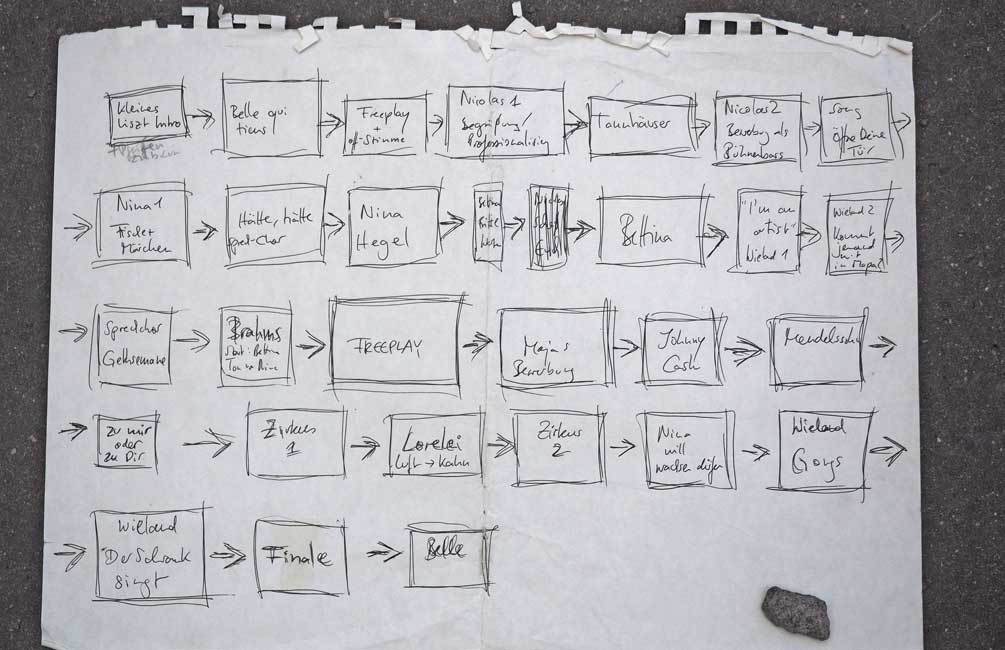 Kleines
Liszt Intro
Belle qui
tiens
Freeplay
+
off-Stimme
Nicolas 1
Begrüßung/
Tannhäuser
Nicolas 2
Bewerbg als
Bühnenbass
Song
öffne Deine
Tür
Nina 1
Fischer
Märchen
Hätte, hätte
Nina
Hegel
Bettina
Bettina
"I'm an
artist"
Wieland 1
Wieland 2
Kommt
jemand
mit
Sprechchor
Gethsemane
Brahms
Start: Bettina
FREEPLAY
Majas
Bewerbung
Johnny
Cash
Mendelssohn
zu mir
oder
zu Dir
Zirkus
1
Lorelei
Luft → Kahn
Zirkus
2
Nina
will
wachsen dürfen
Wieland
Wieland
"Der Schrank
singt
Finale
Belle